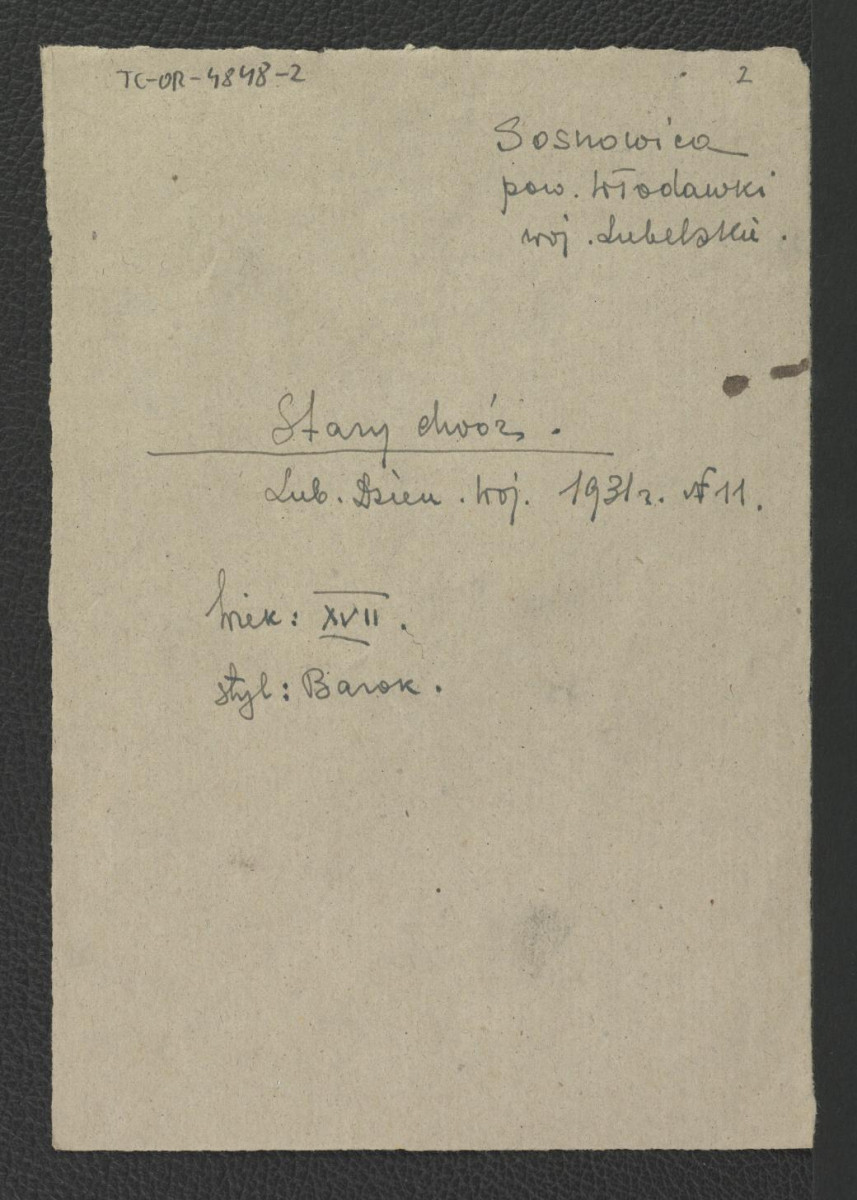 TC-OR-4848-2
2
Sosnowica
pow. Włodawki
woj. Lubelskie.
Stary dwór.
Lub. Dzien. Woj. 1931 r. № 11.
Wiek: XVII.
styl: Barok.